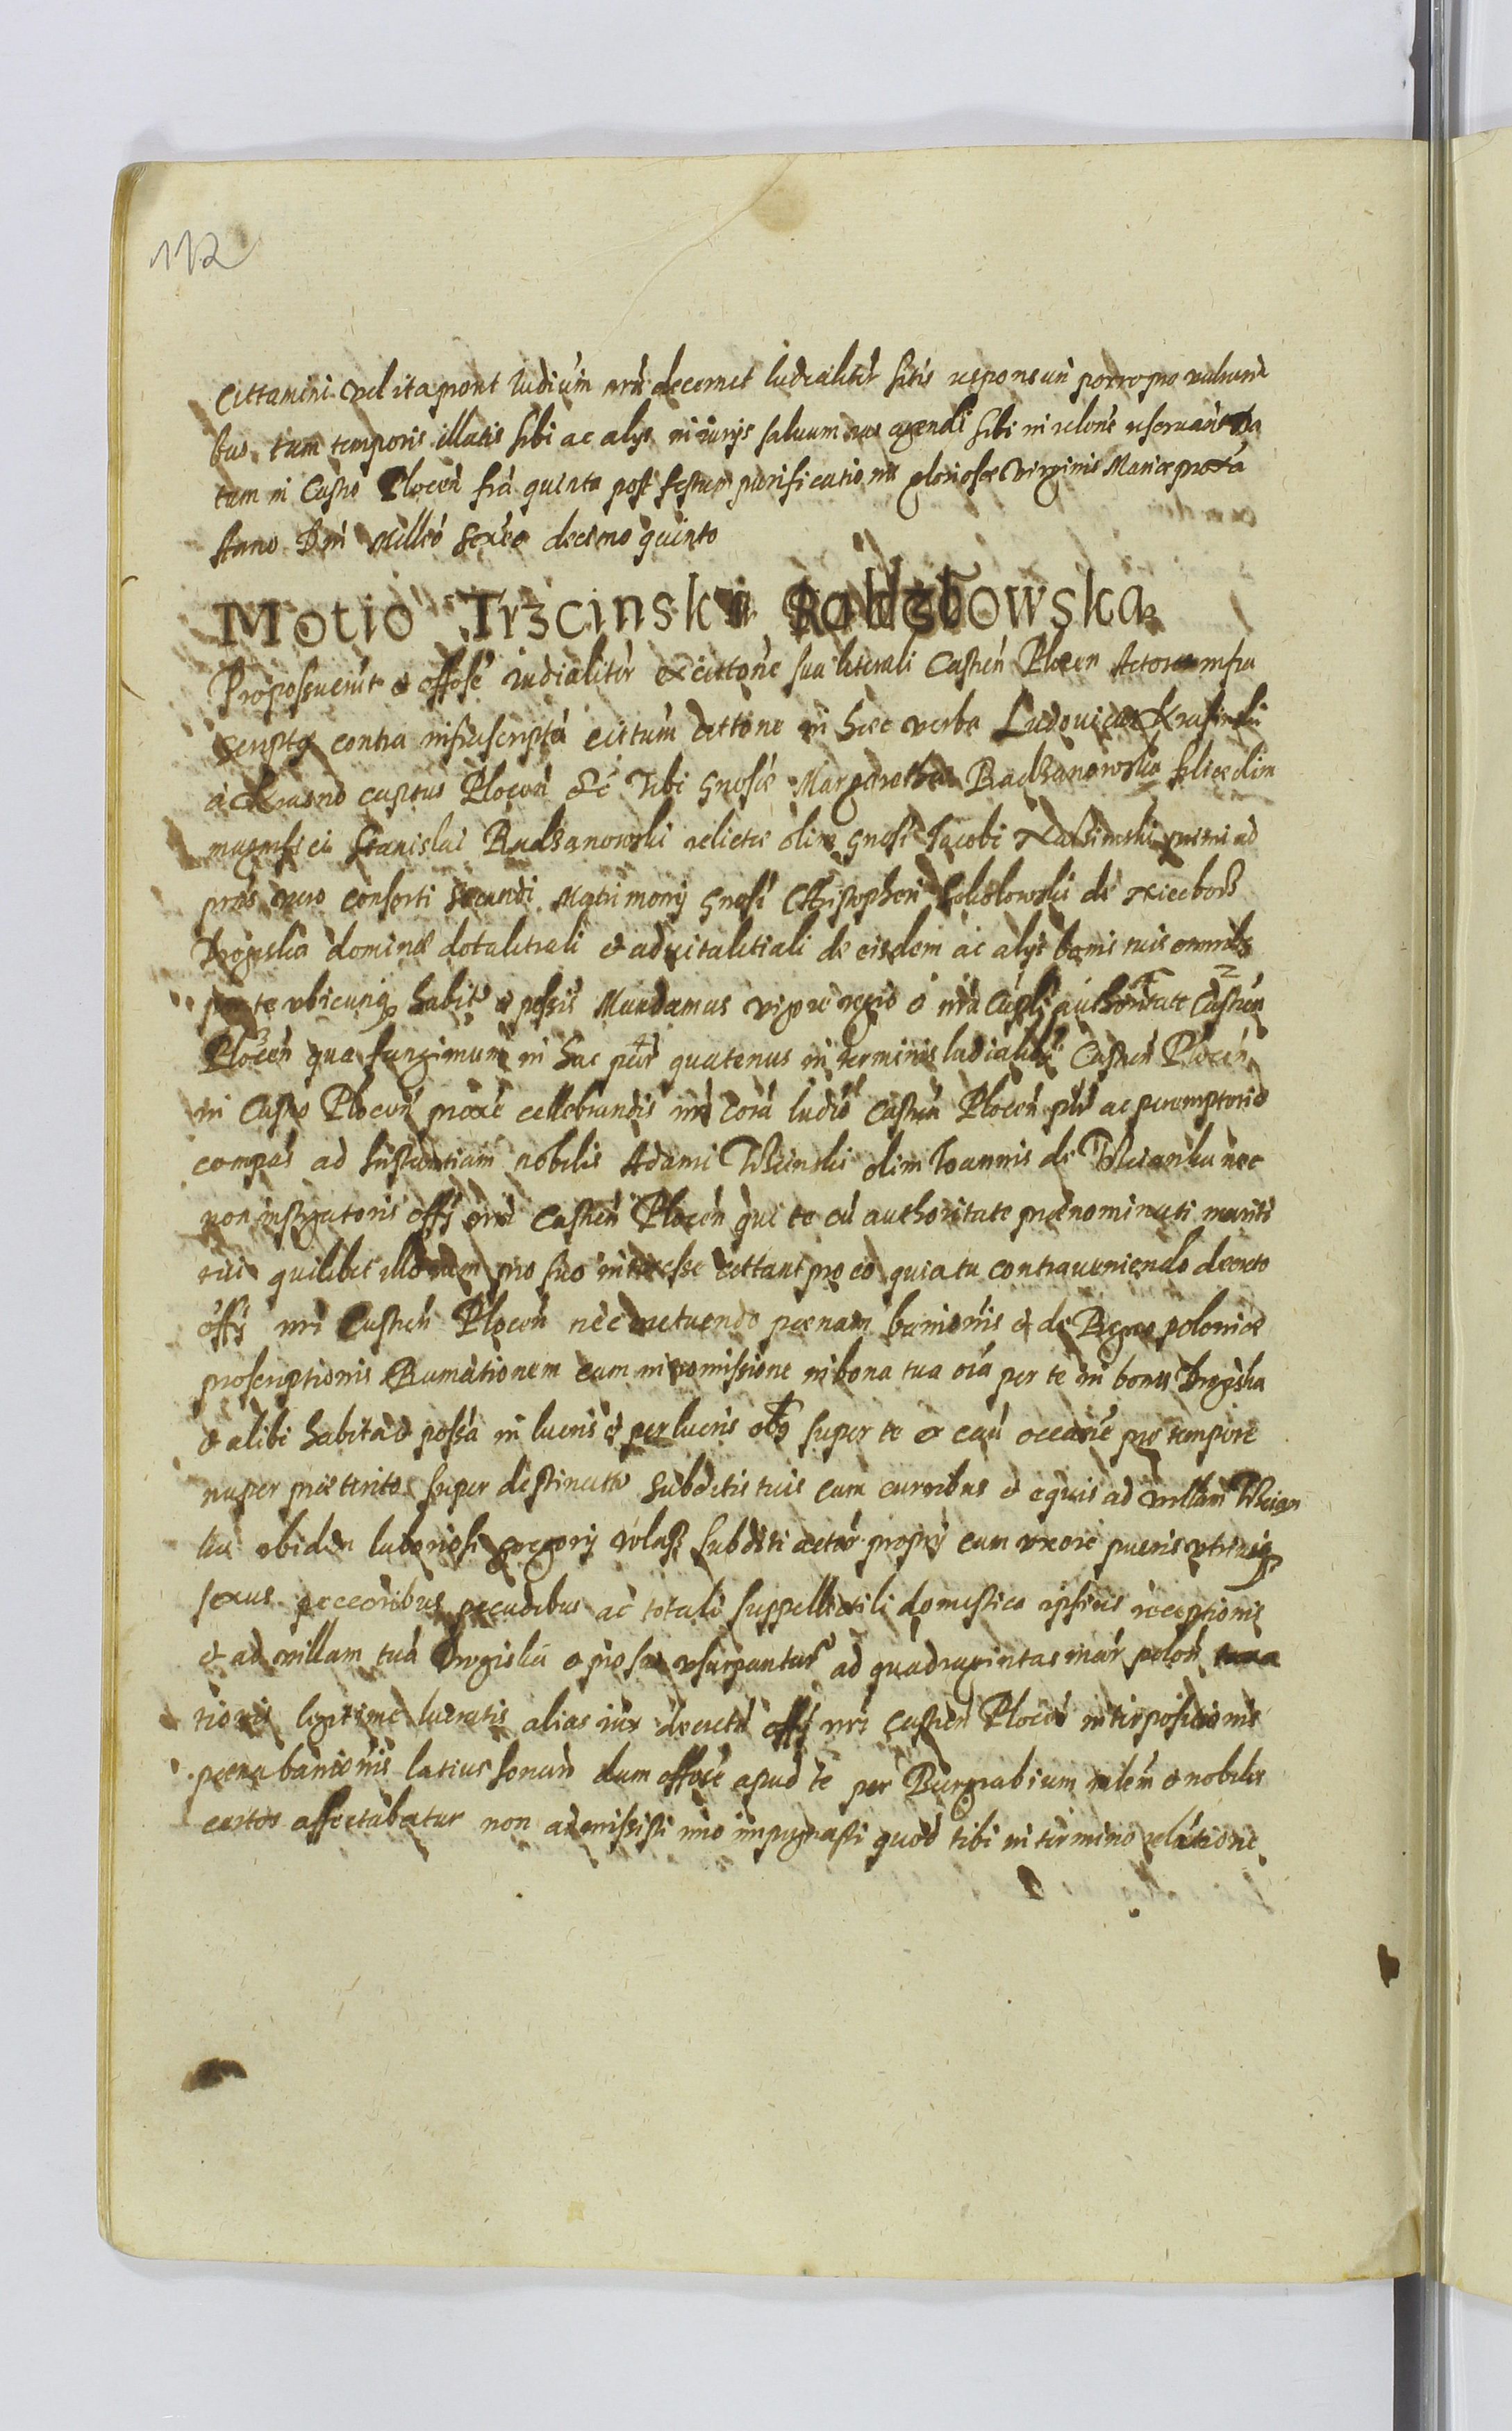 112
Cittamini vel ita prout Iudium nrū decernet Iudialiter sitis responsuri porro pro vulneri
bus tum temporis illatis sibi ac alys iniurys saluum ius agendi sibi in relone reseruant Da
tum in Castro Plocen fria quinta post festum purificationis gloriosæ Virginis Mariæ proxa
Anno Dni Milleo sexeo decimo quinto
Motio Trzcinski Radzanowska
Proposuerūt et offose Iudialiter ex cittone sua literali Castren Plocen Actorea infra
scripta contra infrascriptā cittam cittone in hæc verba Ludovicus Krasinski
a Krasne captus Plocen &c Tibi Gnosæ Margarethæ Radzanowska filiæ olim
magnifici Stanislai Radzanowski relictæ olim gnosi Iacobi primi ad
præs vero consorti secundi Matrimony Gnosi Christopheri de
Drogiska dominæ dotalitiali et aduitalitiali de eisdem ac alys bonis tuis omnibs
per te vbicunqȝ habitis et possis Mandamus vigore regio et nrā Capli authoritate Castren
Plocen qua fungimur in hac parte quatenus in terminis Iudialibus Castren Plocen
in Castro Plocen proxe cellebrandis nrō corā Iudio Castren Plocen plr ac peremptorie
compas ad Instantiam nobilis Adami Trzcinski olim Ioannis de Trzcianka nec
non instigatoris offy nrī Castren Plocen qui te cū authoritate prænominati mariti
tui quilibet illorum pro suo interesse cittant pro eo quia tu contraueniendo decreto
offy nrī Castren Plocen nec metuendo pœnam bannionis et de Regno poloniæ
proscriptionis Rumationem cum intromissione in bona tua oia per te in bonis Drogiska
et alibi habita et possa in lucris et perlucris obs super te ex cau occasie pro tempore
nuper præterito super destinatis subditis tuis cum curribus et equis ad villam Trzcian
ka ibidem laboriosi Gregory Wolass subditi actor propry cum vxore pueris vtriusqȝ
sexus pecoribus pecudibus ac totali suppellectili domestica ipsius receptionis
et ad villam tuā Drogiska usurpantur ad quadragintas mar polon
tionis legitime lucratis alias iux decretū offy nrī Castren Plocen interpositionis
pœna bannionis latius sonan dum offose apud te per Burgrabium nlem et nobiles
certos affectabatur non admissisti imo impugnasti quod tibi in termino relatione